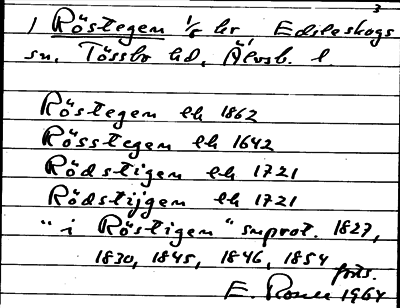 3
1 Röstegen 1/8 hr, Edsleskogs
sn, Tössbo hd, Älvsb. l
Röstegen ek 1862
Rösstegen ek 1642
Rödstigen ek 1721
Rödstijgen ek 1721
" i Röstigen" snprot. 1827,
1830, 1845, 1846, 1854
forts.
E. 1964